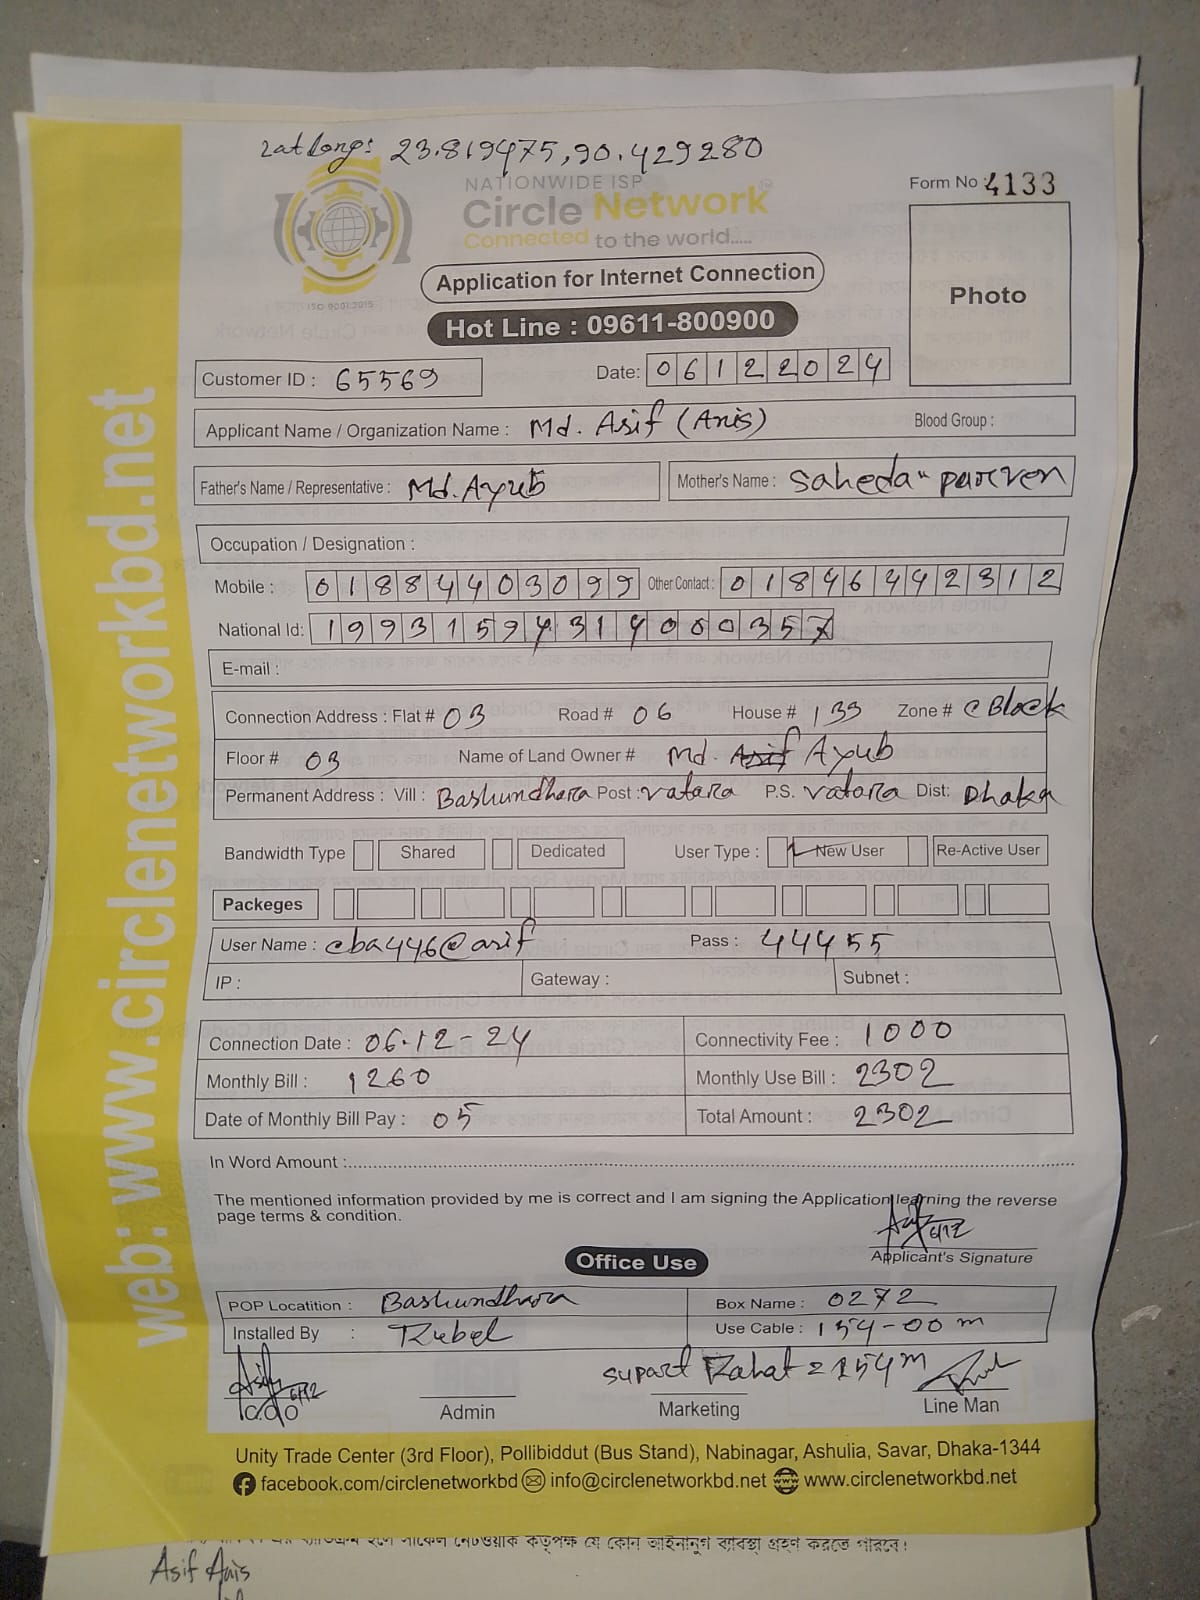 Lat Long: 23.819475,90.429280
NATIONWIDE ISP
Circle Network
Connected to the world.....
ISO 9001:2015
Form No : 4133
Photo
Application for Internet Connection
Hot Line : 09611-800900
Customer ID : 65569 Date: 06122024
Applicant Name / Organization Name : Md. Asif (Anis) Blood Group :
Father's Name / Representative : Md. Ayub Mother's Name : Saheda parven
Occupation / Designation :
Mobile : 01884403099 Other Contact : 01846442312
National Id: 19931594314000357
E-mail :
Connection Address : Flat # 03 Road # 06 House # 133 Zone # C Block
Floor # 03 Name of Land Owner # Md. Asif Ayub
Permanent Address : Vill : Bashundhara Post : vatara P.S. vatara Dist: Dhaka
Bandwidth Type Shared Dedicated User Type : New User Re-Active User
Packeges
User Name : cba446@asif Pass : 44455
IP : Gateway : Subnet :
Connection Date : 06-12-24 Connectivity Fee : 1000
Monthly Bill : 1260 Monthly Use Bill : 2302
Date of Monthly Bill Pay : 05 Total Amount : 2302
In Word Amount :
The mentioned information provided by me is correct and I am signing the Application learning the reverse
page terms & condition.
6/12
Applicant's Signature
Office Use
POP Locatition : Bashundhara Box Name : 0272
Installed By : Rubel Use Cable : 154-00 m
Asif 6/12 supart Rahat = 154m
C.O.O Admin Marketing Line Man
Unity Trade Center (3rd Floor), Pollibiddut (Bus Stand), Nabinagar, Ashulia, Savar, Dhaka-1344
facebook.com/circlenetworkbd info@circlenetworkbd.net www.circlenetworkbd.net
web: www.circlenetworkbd.net
হলে সার্কেল নেটওয়ার্ক কতৃপক্ষ যে কোন আইনানুগ ব্যবস্থা গ্রহণ করতে পারবে।
Asif Anis